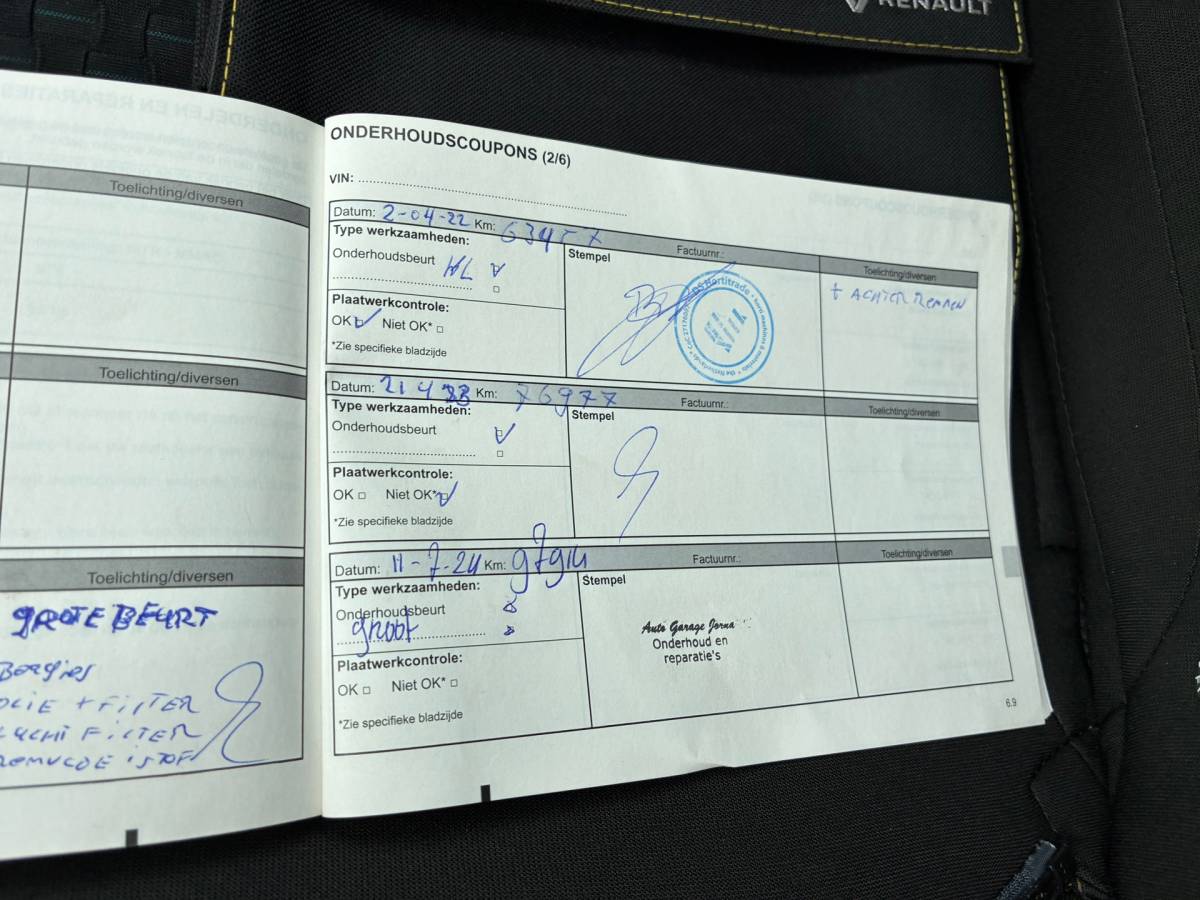 RENAULT
Toelichting/diversen
Toelichting/diversen
Toelichting/diversen
GROTE BEURT
Boegies
OLIE + FILTER
LUCHT FILTER
ONDERHOUDSCOUPONS (2/6)
VIN:
Datum: 2-04-22 Km:
Factuurnr.:
Toelichting/diversen
Type werkzaamheden:
Stempel
Onderhoudsbeurt
+ ACHTER REMMEN
Plaatwerkcontrole:
OK Niet OK*
*Zie specifieke bladzijde
Datum: 21 4 23 Km: 76977
Factuurnr.:
Toelichting/diversen
Type werkzaamheden:
Stempel
Onderhoudsbeurt
Plaatwerkcontrole:
OK Niet OK*
*Zie specifieke bladzijde
Datum: 11-7-24 Km: 97914
Factuurnr.:
Toelichting/diversen
Type werkzaamheden:
Stempel
Onderhoudsbeurt
groot
Auto Garage Jorna
Onderhoud en
reparatie's
Plaatwerkcontrole:
OK Niet OK*
*Zie specifieke bladzijde
6.9